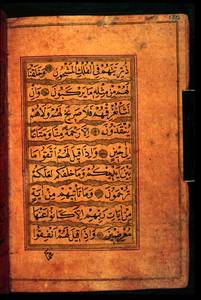 ذُرِّيَّتَهُمْ فِي الْفُلْكِ الْمَشْحُونِ وَخَلَقْنَا
لَهُمْ مِنْ مِثْلِهِ مَا يَرْكَبُونَ وَإِنْ
نَشَأْ نُغْرِقْهُمْ فَلَا صَرِيخَ لَهُمْ وَلَا هُمْ
يُنْقَذُونَ إِلَّا رَحْمَةً مِنَّا وَمَتَاعًا
إِلَى حِينٍ وَإِذَا قِيلَ لَهُمُ اتَّقُوا مَا
بَيْنَ أَيْدِيكُمْ وَمَا خَلْفَكُمْ لَعَلَّكُمْ
تُرْحَمُونَ وَمَا تَأْتِيهِمْ مِنْ آيَةٍ
مِنْ آيَاتِ رَبِّهِمْ إِلَّا كَانُوا عَنْهَا
مُعْرِضِينَ وَإِذَا قِيلَ لَهُمْ أَنْفِقُوا